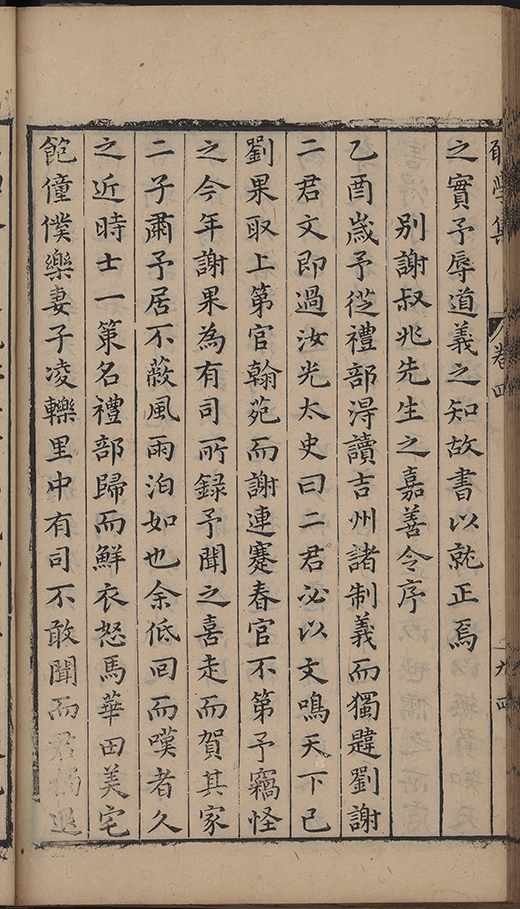 學集
卷四
九四
之實予辱道義之知故書以就正焉
別謝叔兆先生之嘉善令序
乙酉歲予從禮部淂讀吉州諸制義而獨韙劉謝
二君文即過汝光太史曰二君必以文鳴天下已
劉果取上第官翰苑而謝連蹇春官不第予竊怪
之今年謝果為有司所録予聞之喜走而賀其家
二子肅予居不蔽風雨泊如也余低回而嘆者久
之近時士一第名禮部歸而鮮衣怒馬華田美宅
飽僮僕樂妻子凌轢里中有司不敢聞而君獨退